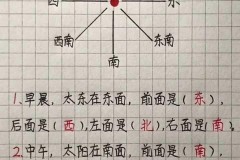 西 东
西南 东南
南
1.早晨，太东在东面，前面是（东），
后面是（西），左面是（北），右面是（南）。
2.中午，太阳在南面，前面是（南），